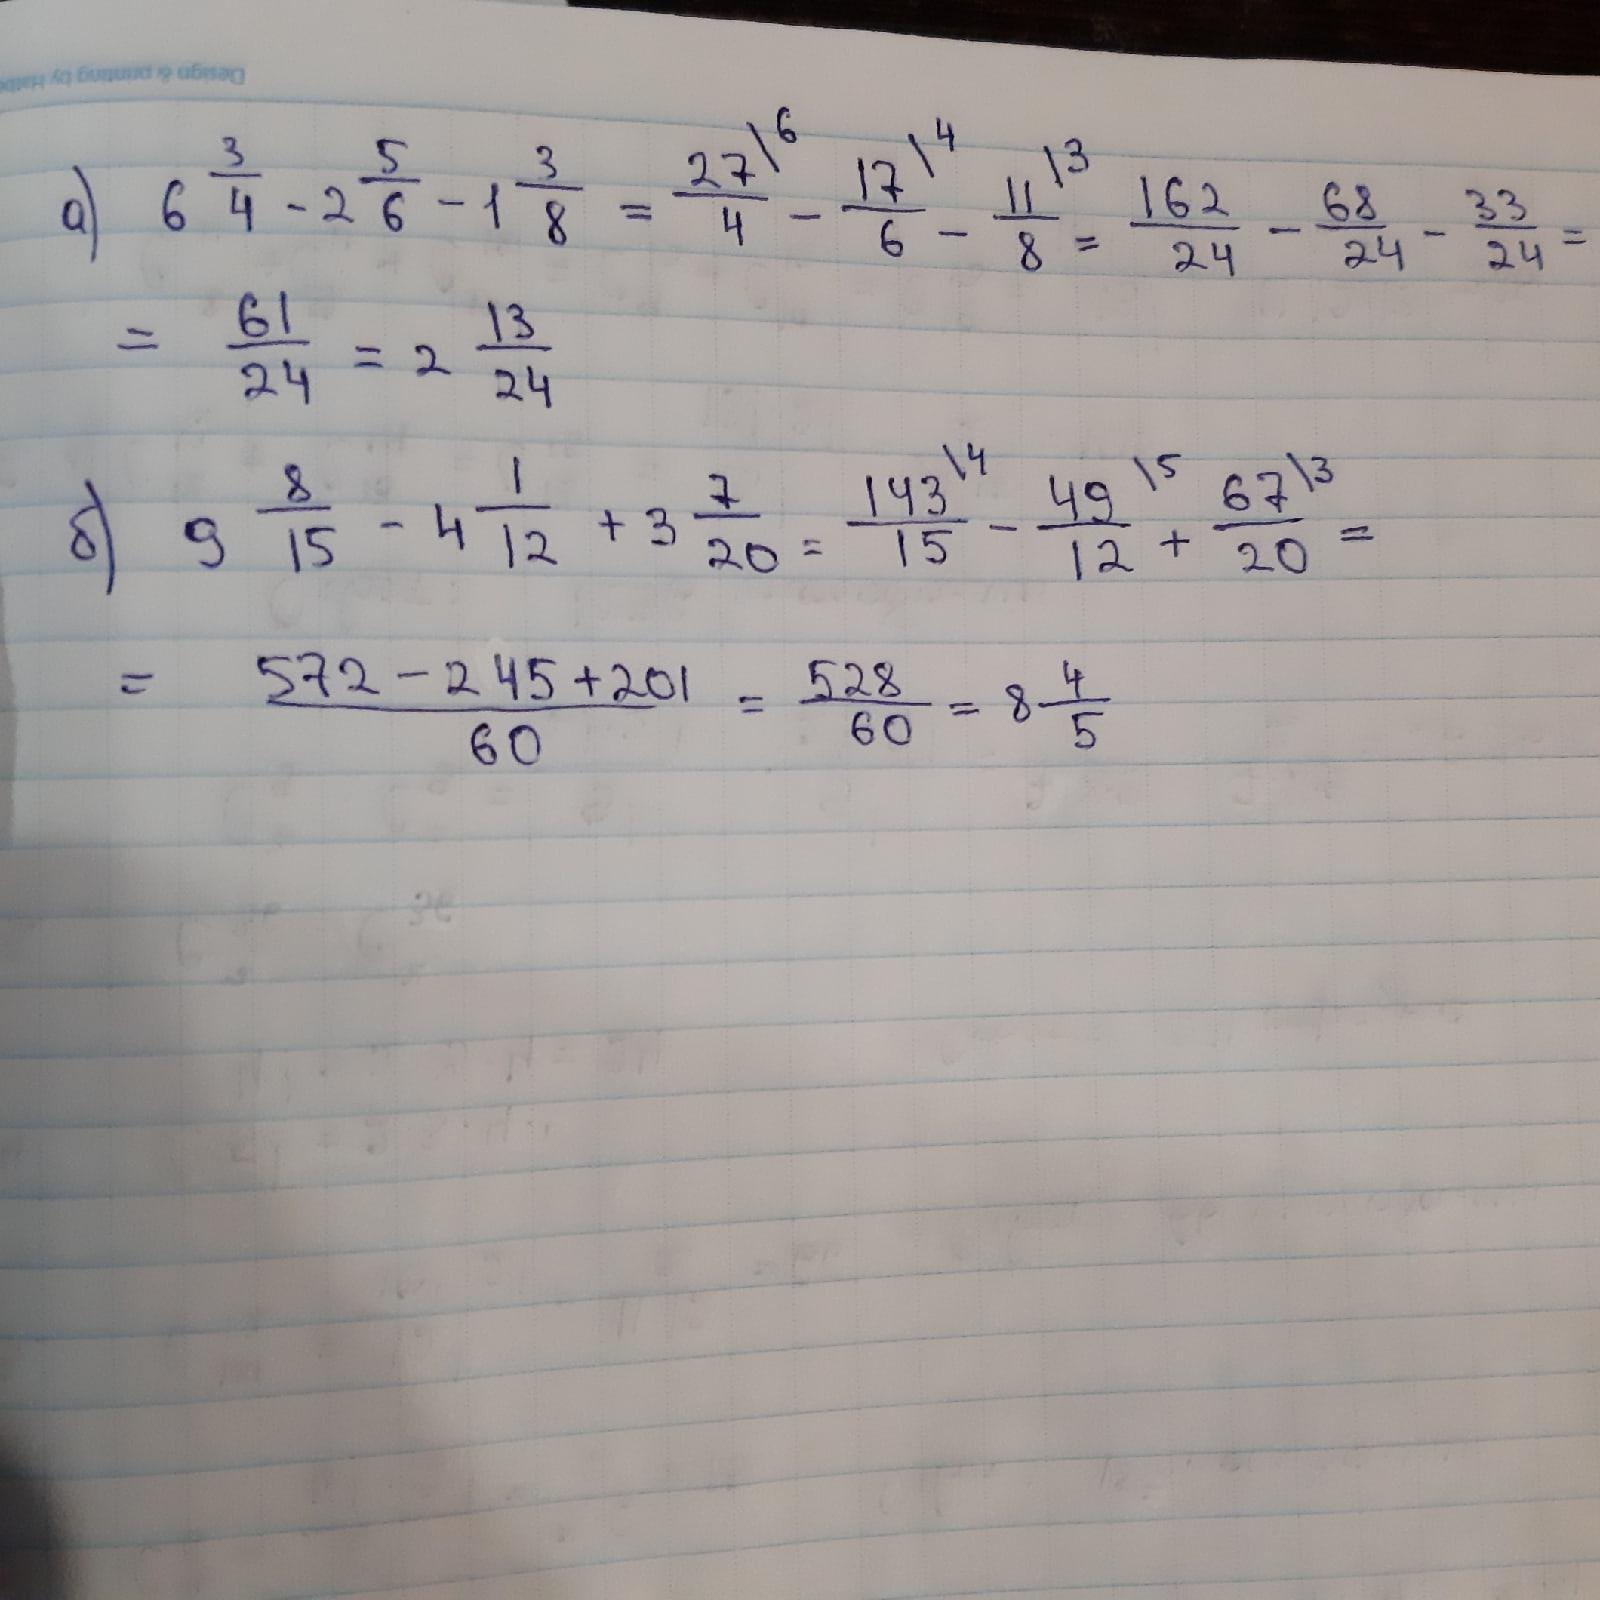 Design & printing by
а) 6 3/4 - 2 5/6 - 1 3/8 = 27/4 \6 - 17/6 \4 - 11/8 \3 = 162/24 - 68/24 - 33/24 =
= 61/24 = 2 13/24
б) 9 8/15 - 4 1/12 + 3 7/20 = 143/15 \4 - 49/12 \5 + 67/20 \3 =
= 572 - 245 + 201/60 = 528/60 = 8 4/5